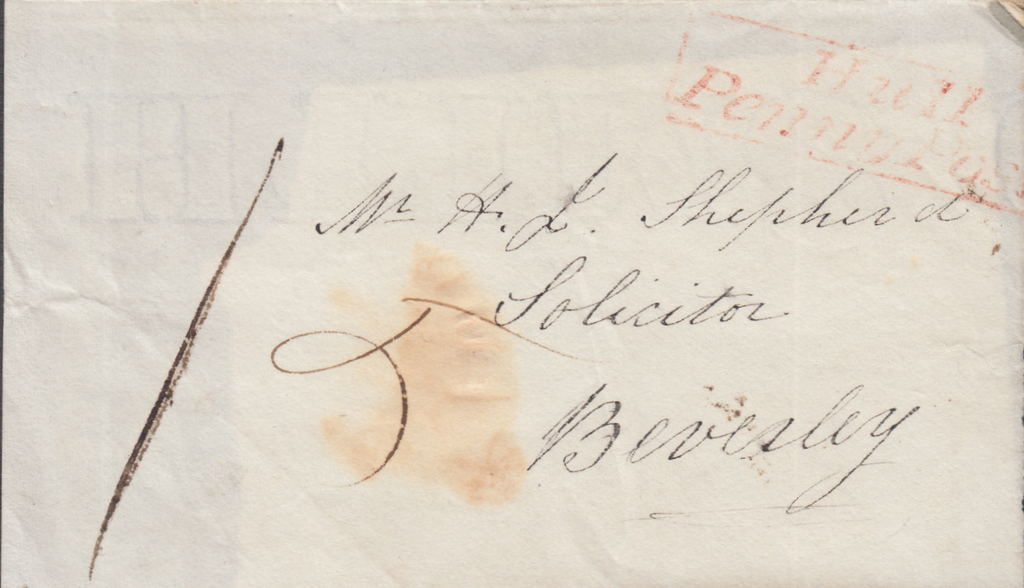 Hull
Penny Pos
Mr H. J. Shepherd
Solicitor
Beverley
1
5